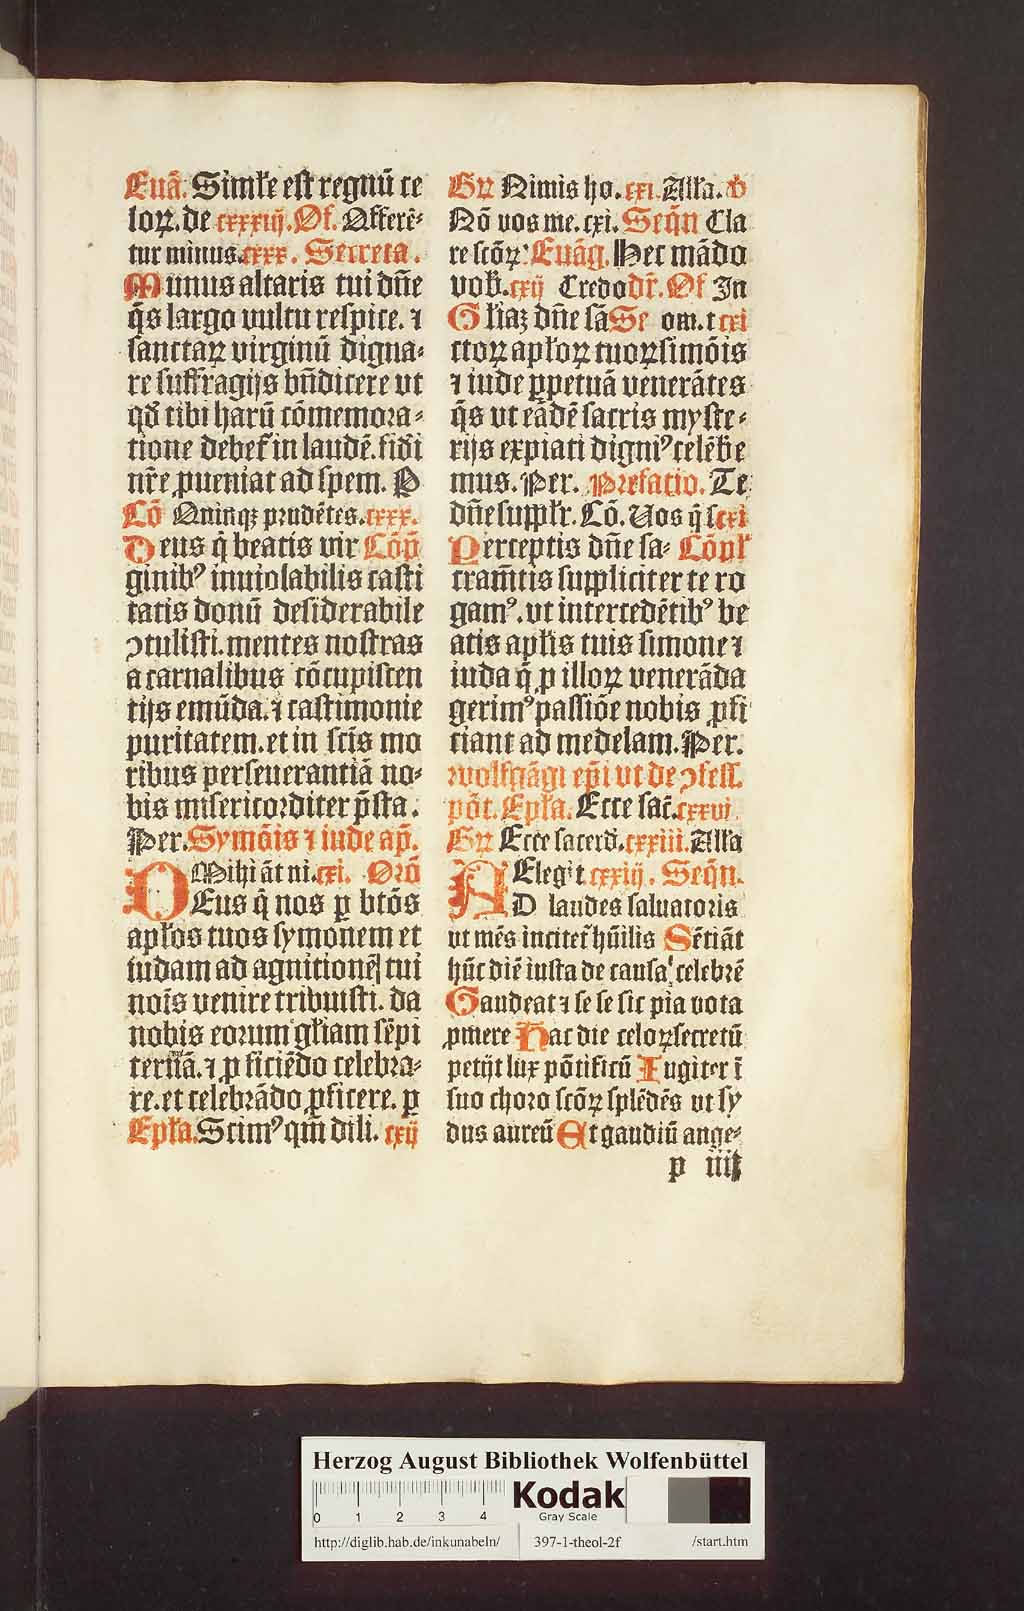 Euā. Simłe est regnū ce
loꝝ. de cxxxiij. Of. Afferē⸗
tur minus. cxxx. Secreta.
Munus altaris tui dn̄e
q̄s largo vultu respice. ⁊
sanctaꝝ virginū digna⸗
re suffragijs bn̄dicere vt
qđ tibi harū cōmemora⸗
tione debet in laudē. fiđi
nr̄e ꝓueniat ad spem. P
Cō Quinqꝫ prudētes. cxxx.
Deus q̄ beatis vir Cōp̄
ginibꝰ inuiolabilis casti
tatis donū desiderabile
ↄtulisti. mentes nostras
a carnalibus cōcupiscen
tijs emūda. ⁊ castimonie
puritatem. et in sc̄is mo
ribus perseuerantiā no⸗
bis misericorditer p̄sta.
Per. Symōis ⁊ iude ap̄.
Mihi āt ni. cxi. Orō
DEus q̄ nos ꝑ btōs
apłos tuos symonem et
iudam ad agnitionē tui
noīs venire tribuisti. da
nobis eorum głiam sēpi
ternā. ⁊ ꝓficiēdo celebra⸗
re. et celebrādo ꝓficere. ꝑ
Epła. Scimꝰ qm̄ dili. cxij
Gꝝ Nimis ho. cxi. Ałła. v̄
Nō vos me. cxi. Seqn̄ Cla
re scōꝝ. Euāg. Hec mādo
vob. cxij Credo dr̄. Of In
Głiaꝫ dn̄e sā Se om. t cxi
ctoꝝ apłoꝝ tuoꝝ simōis
⁊ iude ꝑpetuā venerātes
q̄s vt eādē sacris myste⸗
rijs expiati digniꝰ celēbe
mus. Per. Prefacio. Te
dn̄e suppłr. Cō. Uos q̄ s cxi
Perceptis dn̄e sa⸗ Cōpł
cram̄tis suppliciter te ro
gamꝰ. vt intercedētibꝰ be
atis apłis tuis simone ⁊
iuda q̄ ꝓ illoꝝ venerāda
gerimꝰ passiōe nobis ꝓfi
ciant ad medelam. Per.
wolfgāgi ep̄i vt de ↄfess.
pōt. Epła. Ecce sac̄. cxxvi.
Gꝝ Ecce sacerđ. cxxiii. Ałła
Elegit. cxxiij. Seqn̄.
AD laudes saluatoris
vt mēs incitet hūilis Sētiāt
hūc diē iusta de causa celebrē
Gaudeat ⁊ se se sic pīa vota
ꝓmere Hac die celoꝝ secretū
petijt lux pōtificū Iugiter ī
suo choro scōꝝ splēdēs vt sy
dus aureū Et gaudiū ange⸗
p iiij
Herzog August Bibliothek Wolfenbüttel
0 1 2 3 4 Kodak
Gray Scale
http://diglib.hab.de/inkunabeln/ 397-1-theol-2f /start.htm